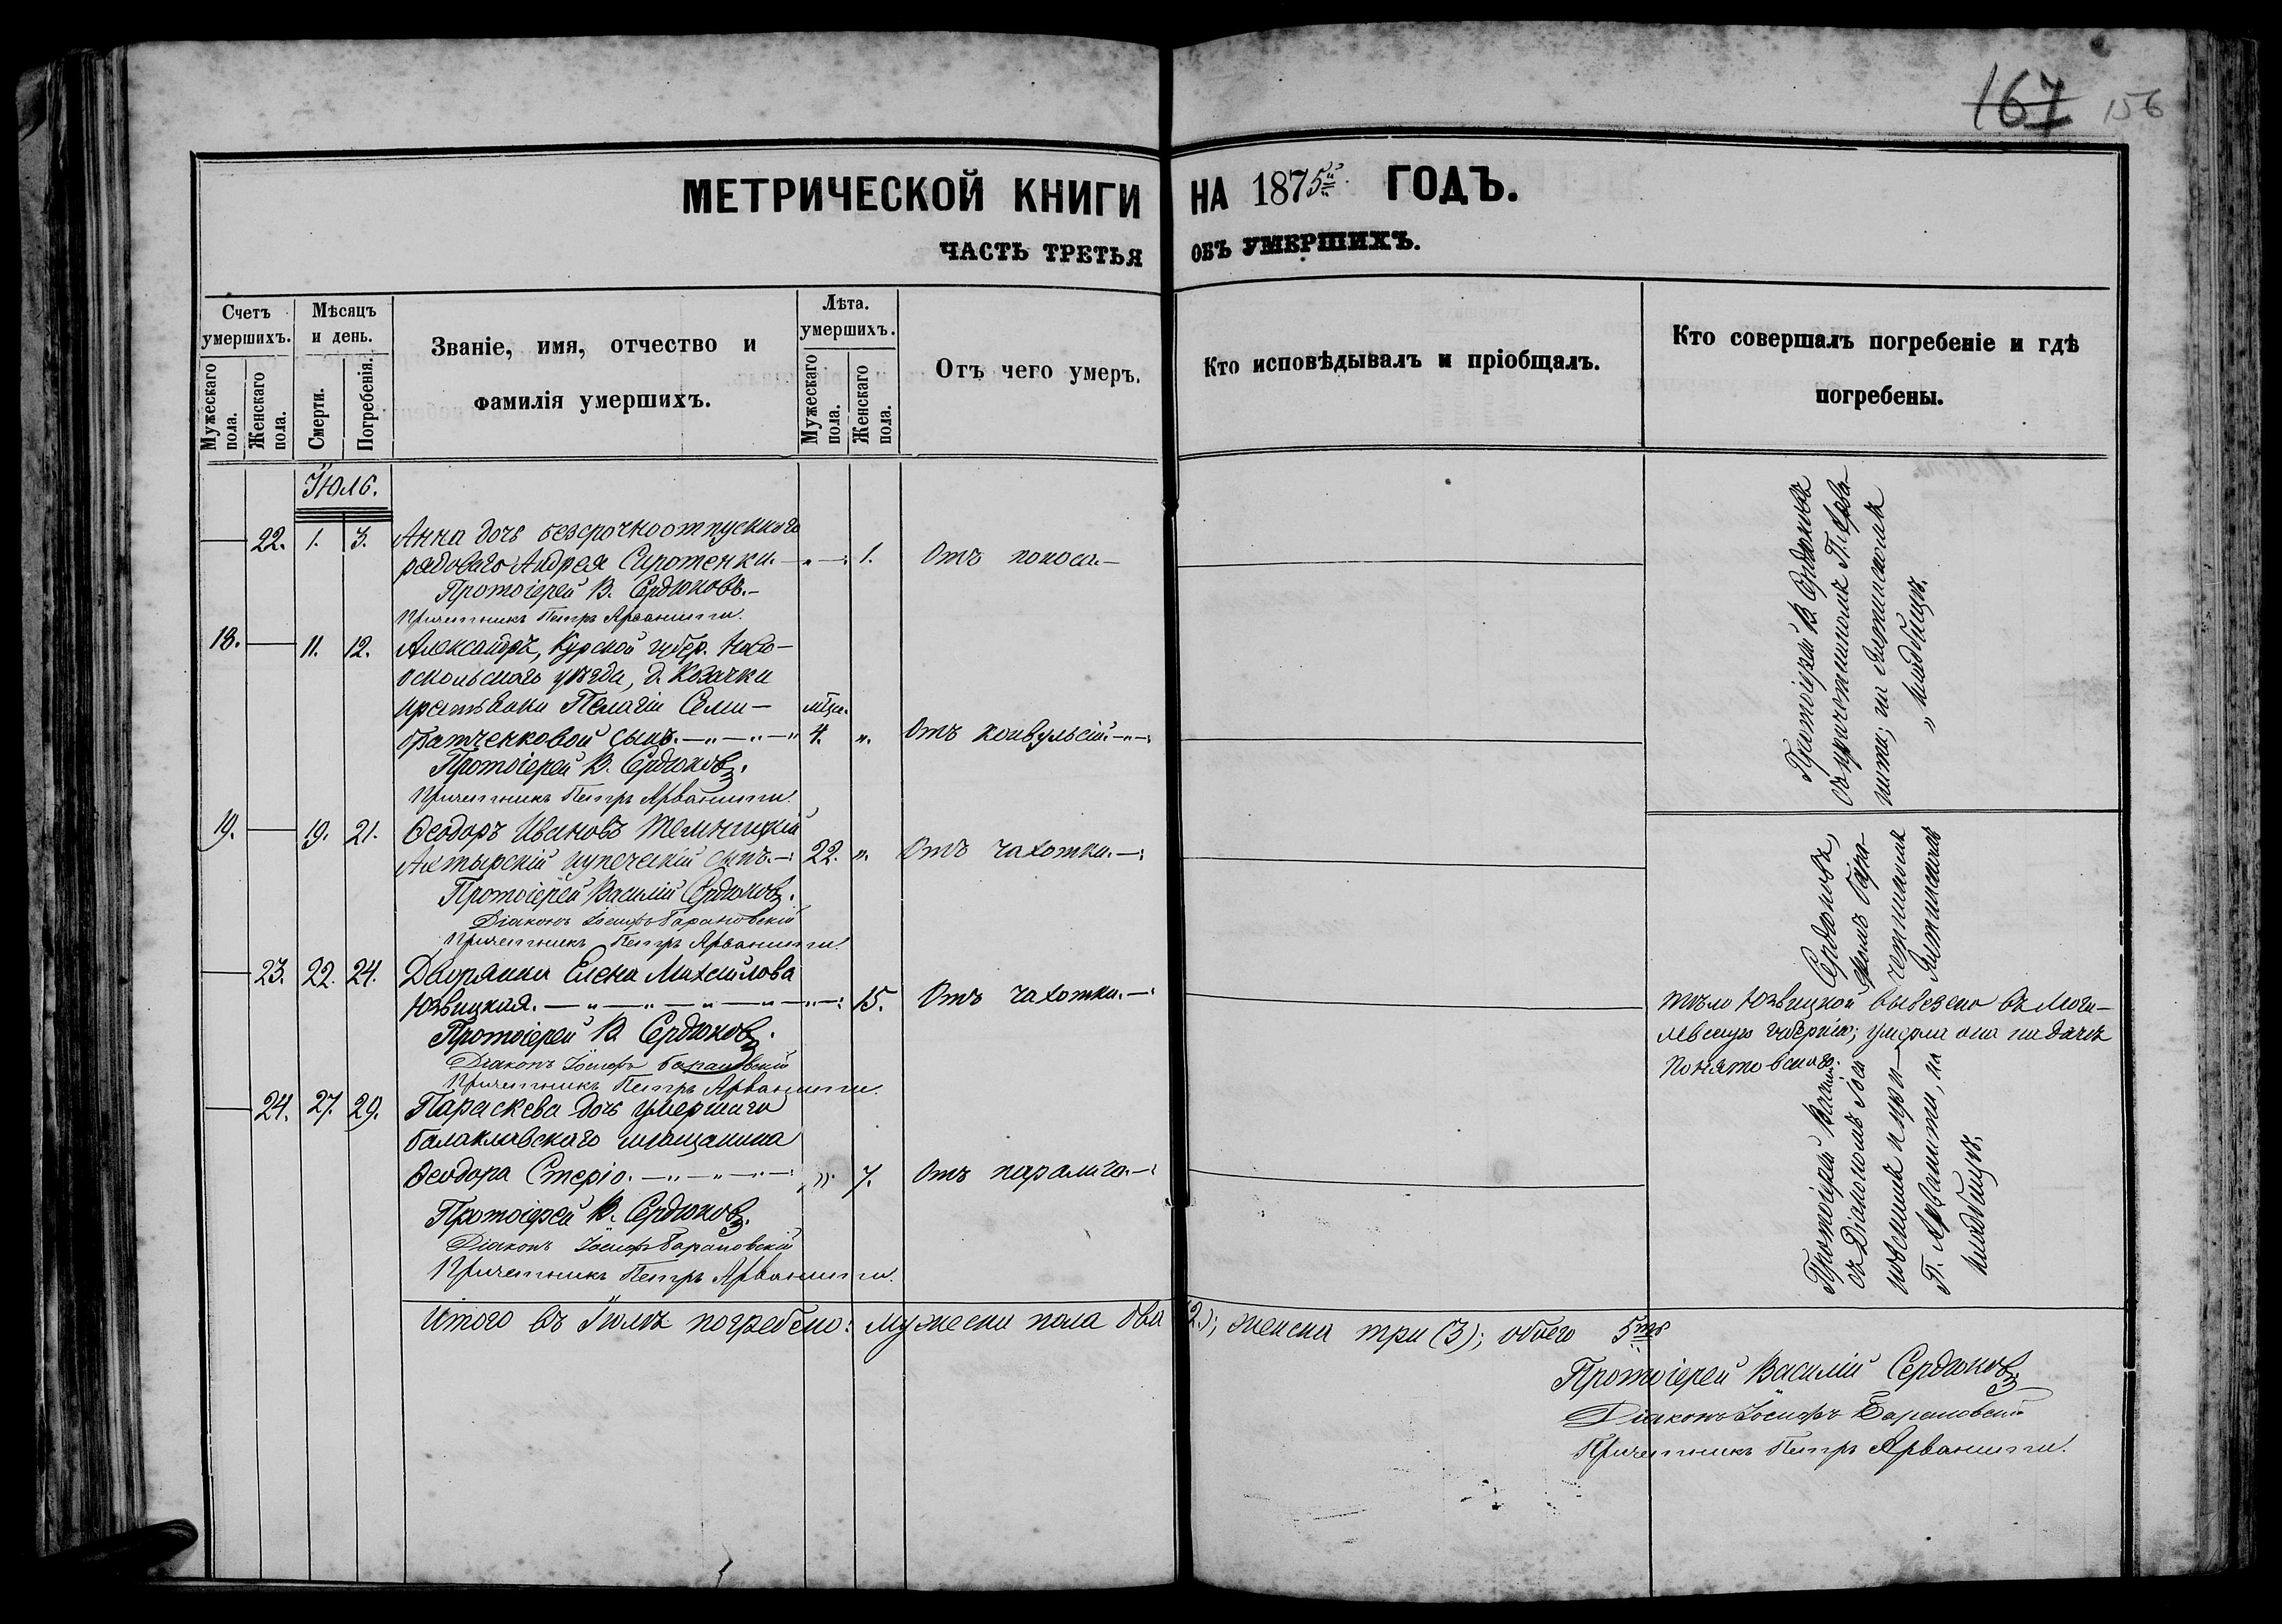 167 156
МЕТРИЧЕСКОЙ КНИГИ НА 1875й ГОДЪ.
ЧАСТЬ ТРЕТЬЯ ОБЪ УМЕРШИХЪ.
Счетъ умершихъ.
Мужескаго пола.
Женскаго пола.
Мѣсяцъ и день.
Смерти.
Погребенія.
Званіе, имя, отчество и
фамилія умершихъ.
Лѣта. умершихъ.
Мужескаго пола.
Женскаго пола.
Отъ чего умеръ.
Кто исповѣдывалъ и пріобщалъ.
Кто совершалъ погребеніе и гдѣ
погребены.
Іюль.
22. 1. 3. Анна дочь безсрочноотпускнаго
рядоваго Андрея Сиротенки. 1. Отъ поноса.
Протоіерей В. Сердюковъ.
Причетникъ Петръ Арванитти.
18. 11. 12. Александръ, Курской губер. Ново-
оскольскаго уѣзда, д. Козачки
крестьянки Пелагіи Семи- мѣся.
братченковой сынъ. 4. „. Отъ конвульсій.
Протоіерей В. Сердюковъ.
Причетникъ Петръ Арванитти.
Протоіерей В. Сердюковъ
съ причетникомъ П. Арва-
нитти; на
„ кладбищѣ.
19. 19. 21. Ѳеодоръ Ивановъ Темницкій
Ахтырскій купеческій сынъ. 22. „. Отъ чахотки.
Протоіерей Василій Сердюковъ.
Діаконъ Іосифъ Барановскій
Причетникъ Петръ Арванитти.
23. 22. 24. Дворянка Елена Михайлова
Юзвицкая. 15. Отъ чахотки.
Протоіерей В. Сердюковъ.
Діаконъ Іосифъ Барановскій
Причетникъ Петръ Арванитти.
тѣло Юзвицкой вывезено въ Моги-
левскую губернію; умерла она на дачѣ
Понятовскаго.
24. 27. 29. Параскева дочь умершаго
балаклавскаго мѣщанина
Ѳеодора Стеріо. „. 7. Отъ паралича.
Протоіерей В. Сердюковъ.
Діаконъ Іосифъ Барановскій
Причетникъ Петръ Арванитти.
Протоіерей Василій Сердюковъ,
съ Діакономъ Іосифомъ Бара-
новскимъ и причетникомъ
П. Арванитти, на
кладбищѣ.
Итого въ Іюлѣ погребено: мужеска пола два (2.); женска три (3); обоего 5ть
Протоіерей Василій Сердюковъ
Діаконъ Іосифъ Барановскій
Причетникъ Петръ Арванитти.